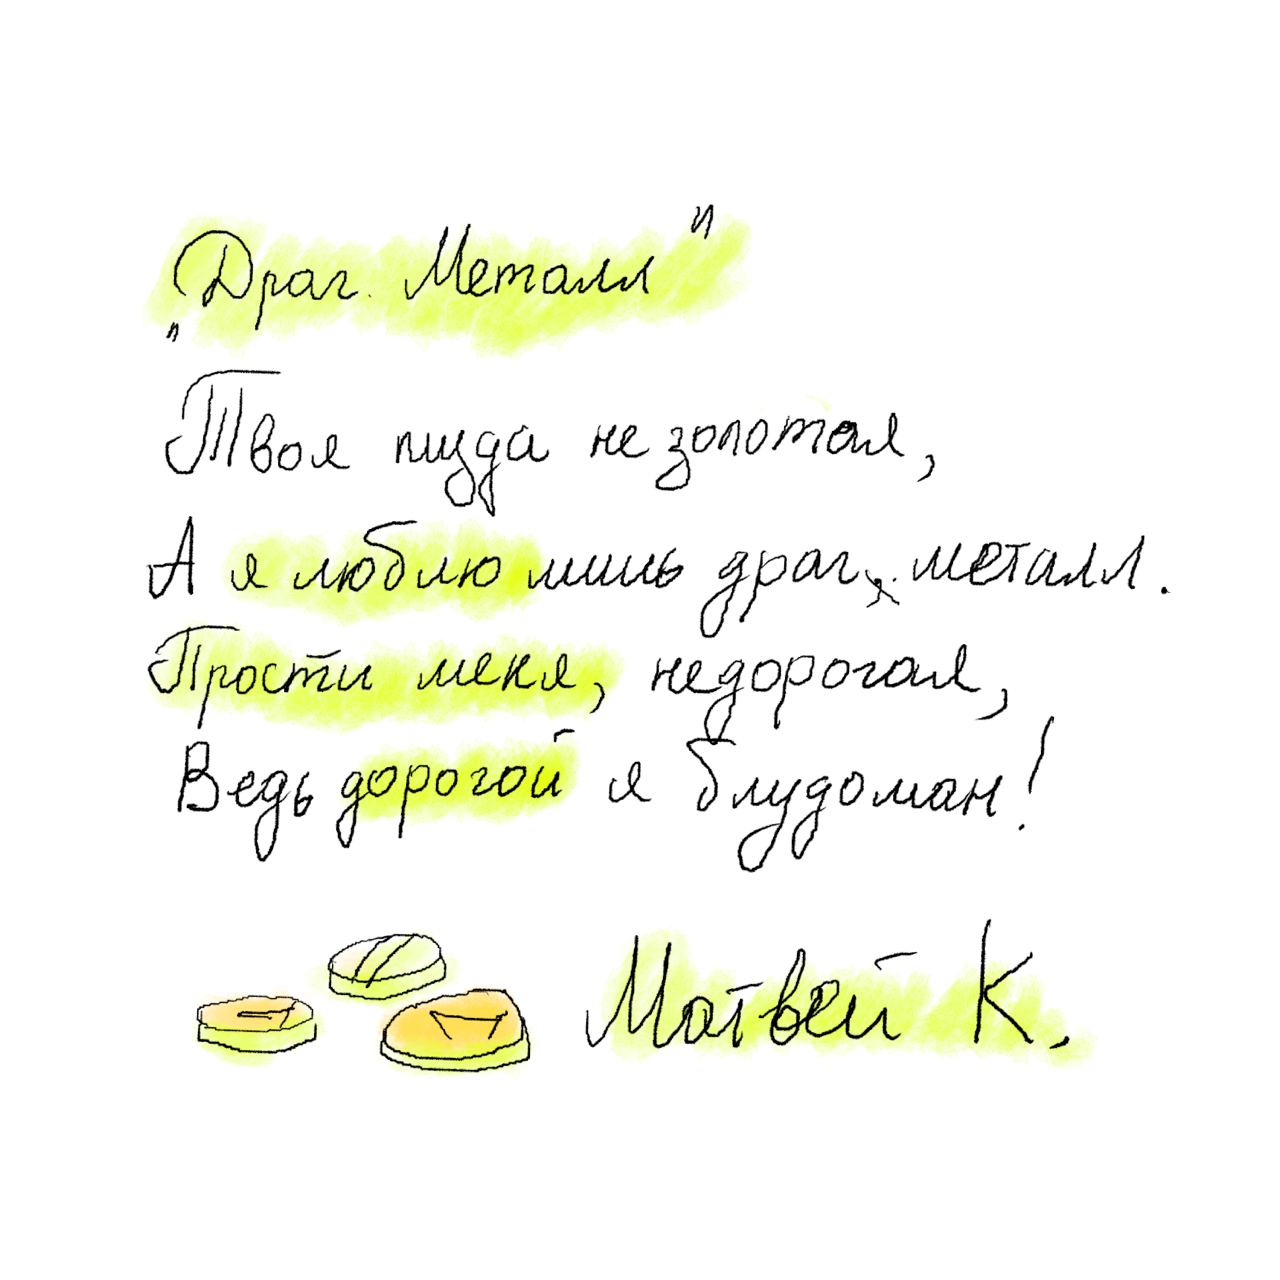 "Драг. Металл"
Твоя пизда не золотая,
А я люблю лишь драг. металл.
Прости меня, недорогая,
Ведь дорогой я блудоман!
Матвей К.